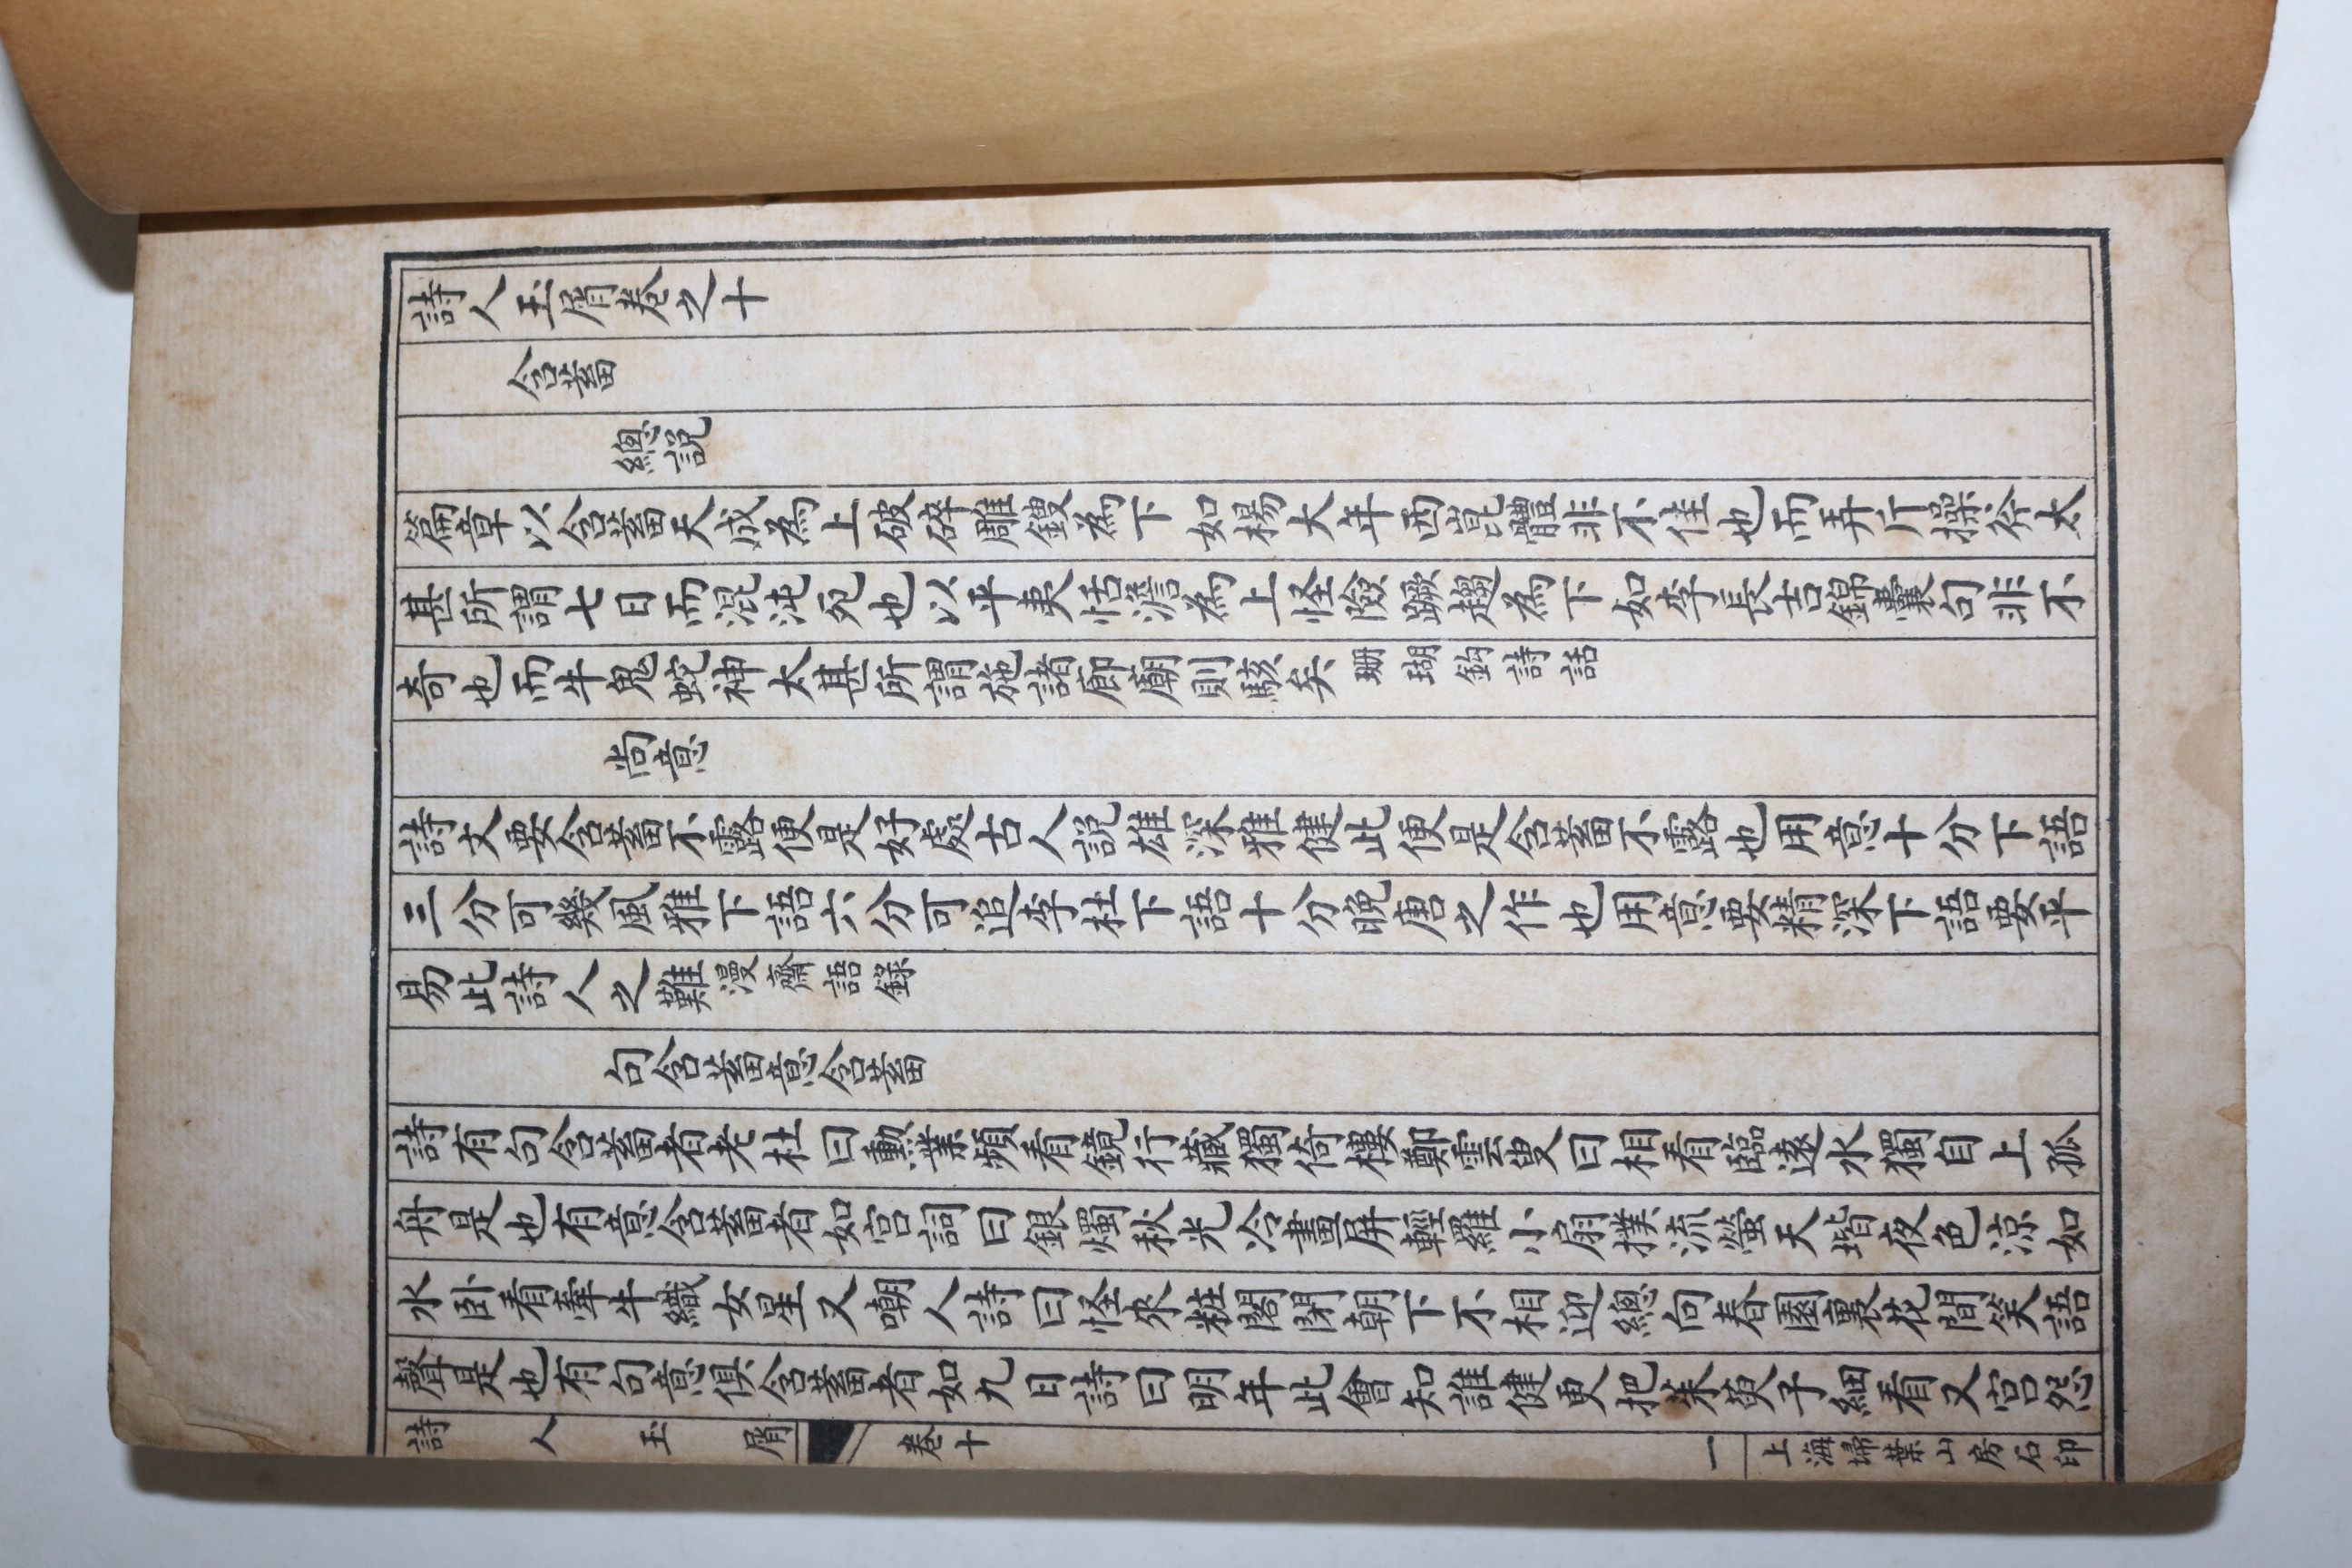 詩人玉屑卷之十
含蓄
總説
篇章以含蓄天成爲上破碎雕鎪爲下如楊大年西崑體非不佳也而弄斤操斧太
甚所謂七日而混沌死也以平夷恬澹爲上怪險蹶趨爲下如李長吉錦囊句非不
奇也而牛鬼蛇神太甚所謂施諸廊廟則駭矣珊瑚鈎詩話
尚意
詩文要含蓄不露便是好處古人説雄深雅健此便是含蓄不露也用意十分下語
三分可幾風雅下語六分可追李杜下語十分晚唐之作也用意要精深下語要平
易此詩人之難漫齋語錄
句含蓄意含蓄
詩有句含蓄者老杜曰勳業頻看鏡行藏獨倚樓鄭雲叟曰相看臨遠水獨自上孤
舟是也有意含蓄者如宮詞曰銀燭秋光冷畫屏輕羅小扇撲流螢天堦夜色涼如
水卧看牽牛織女星又嘲人詩曰怪來粧閣閉朝下不相迎總向春園裏花間笑語
聲是也有句意俱含蓄者如九日詩曰明年此會知誰健更把茱萸子細看又宮怨
詩人玉屑 卷十 一 上海掃葉山房石印